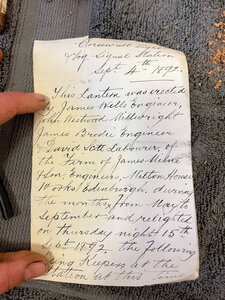 Corsewall Light
Fog Signal Station
Sept 4th 1892.
This Lantern was erected
by James Wells Engineer,
John Westwood Millwright
James Brodie Engineer
& David Scott Labourer, of
the Firm of James Milne
& Son. Engineers, Milton House
Works Edinburgh, during
the months, from May to
September and relighted
on Thursday night 15th
Sept 1892. the following
being Keepers at the
Station at this time